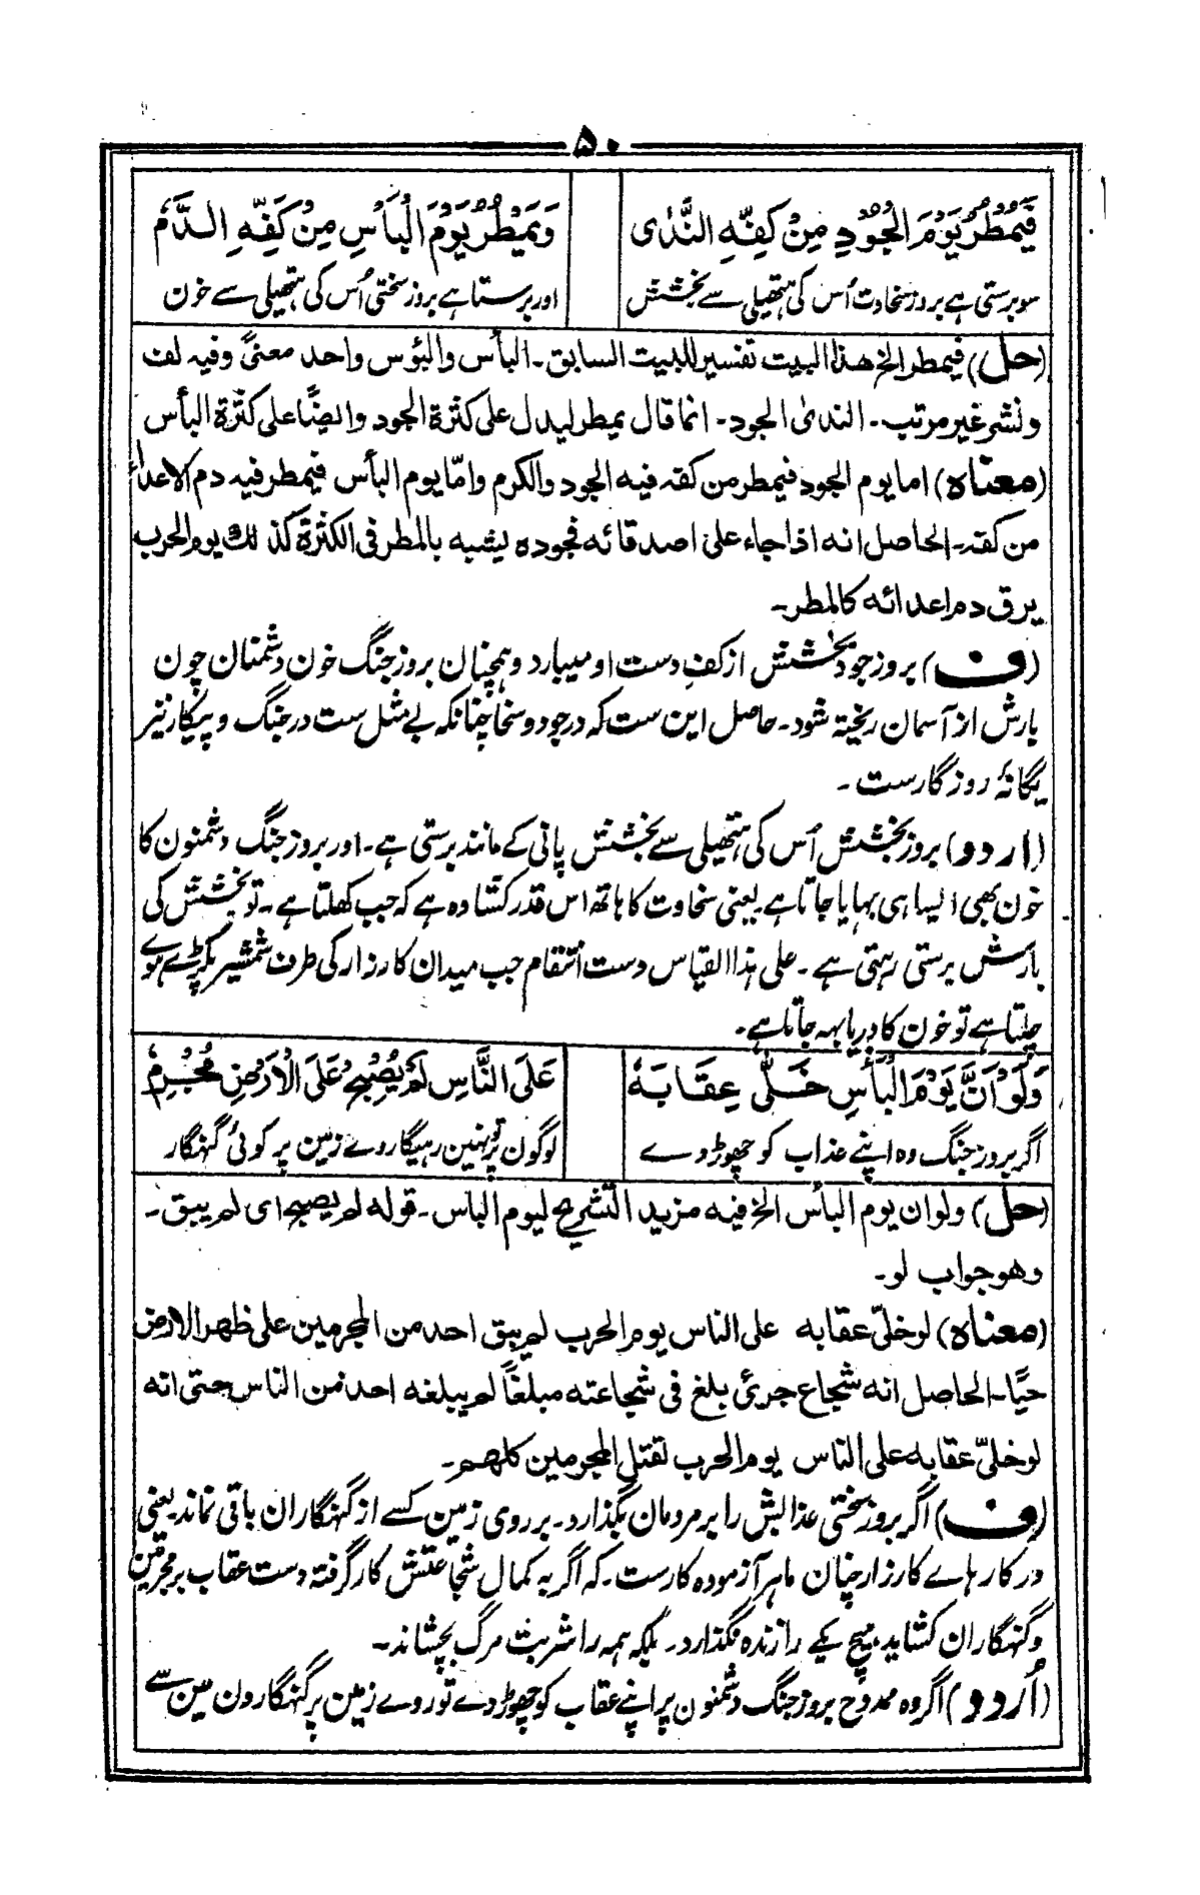 ۵۰
فَیَمْطُرُ یَوْمَ الْجُوْدِ مِنْ کَفِّهِ النَّدٰی وَیَمْطُرُ یَوْمَ الْبَأْسِ مِنْ کَفِّهِ الدَّمُ
سو برستی ہے بروز سخاوت اُس کی ہتھیلی سے بخشش اور برستا ہے بروز سختی اُس کی ہتھیلی سے خون
(حل) فیمطر الخ هذا البیت تفسیر للبیت السابق۔ البأس والبؤس واحد معنیً وفیه لف
ونشر غیر مرتب۔ الندیٰ الجود۔ انما قال یمطر لیدل علی کثرة الجود وایضًا علی کثرة البأس
(معناہ) اما یوم الجود فیمطر من کفه فیه الجود والکرم وامّا یوم البأس فیمطر فیه دم الاعداء
من کفه۔ الحاصل انه اذا جاء علی اصدقائه فجوده یشبه بالمطر فی الکثرة کذلك یوم الحرب
یرق دم اعدائه کالمطر۔
(ف) بروز جود بخشش از کف دست او میبارد وهمچنان بروز جنگ خون دشمنان چون
بارش از آسمان ریخته شود۔ حاصل این ست که در جود و سخا چنانکه بے مثل ست در جنگ و پیکار نیز
یگانۂ روزگارست۔
(اردو) بروز بخشش اُس کی ہتھیلی سے بخشش پانی کے مانند برستی ہے۔ اور بروز جنگ دشمنون کا
خون بھی ایسا ہی بہایا جاتا ہے یعنی سخاوت کا ہاتھ اس قدر کشادہ ہے کہ جب کھلتا ہے۔ تو بخشش کی
بارش برستی رہتی ہے۔ علی ہذا القیاس دست انتقام جب میدان کارزار کی طرف شمشیر پکڑے ہوے
چلتا ہے تو خون کا دریا بہہ جاتا ہے۔
وَلَوْ اَنَّ یَوْمَ الْبَأْسِ خَلّٰی عِقَابَهٗ عَلَی النَّاسِ لَمْ یُصْبِحْ عَلَی الْاَرْضِ مُجْرِمُ
اگر بروز جنگ وہ اپنے عذاب کو چھوڑ دے لوگون پر تو نہین رہیگا روے زمین پر کوئی گنہگار
(حل) ولو ان یوم البأس الخ فیه مزید التشریح لیوم البأس۔ قوله لم یصبح ای لم یبق۔
وهو جواب لو۔
(معناہ) لو خلیّ عقابه علی الناس یوم الحرب لم یبق احد من المجرمین علی ظهر الارض
حیًا۔ الحاصل انه شجاع جرئ بلغ فی شجاعته مبلغاً لم یبلغه احد من الناس حتی انه
لو خلیّ عقابه علی الناس یوم الحرب لقتل المجرمین کلهم۔
(ف) اگر بروز سختی عذابش را بر مردمان بگذارد۔ بر روی زمین کسے از گنهگاران باقی نماند یعنی
در کارهاے کارزار چنان ماهر آزموده کارست۔ که اگر به کمال شجاعتش کار گرفته دست عقاب بر مجرمین
و گنهگاران کشاید، هیچ یکے را زنده نگذارد۔ بلکه همه را شربت مرگ بچشاند۔
(اُردو) اگر وہ ممدوح بروز جنگ دشمنون پر اپنے عقاب کو چھوڑ دے تو روے زمین پر گنہگارون مین سے